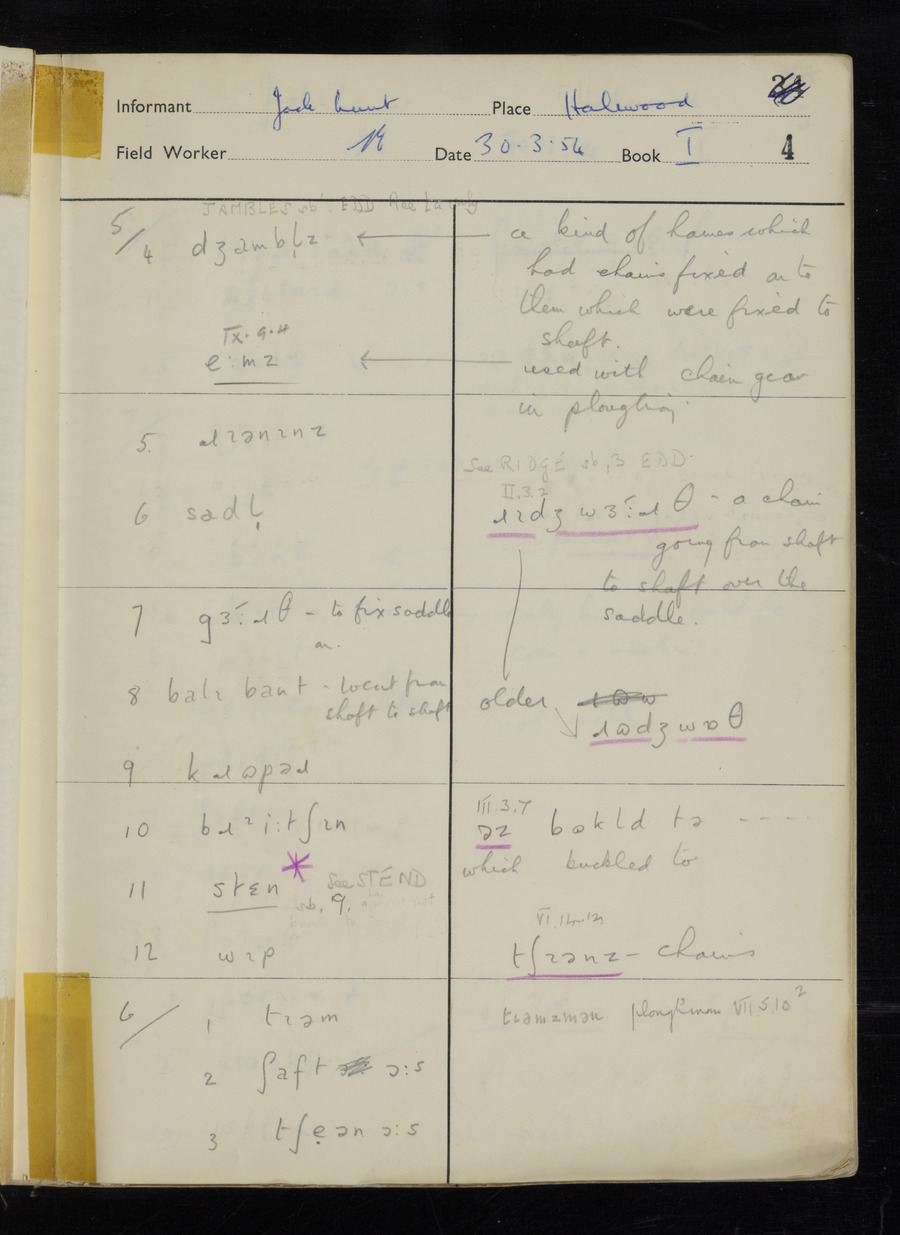 Informant Jack Lunt Place Halewood
Field Worker Date 30.3.54 Book I 4
JAMBLES sb. EDD
5/4 dʒambl̩z ← a kind of hames which
had chains fixed on to
them which were fixed to
shaft.
IX.9.4
e:mz ← used with chain gear
in ploughing.
5. ɹɪənɪnz
See RIDGE sb, 3 EDD.
II.3.2
6 sadl̩ ɹɪdʒ wɜ˞:ɹθ - a chain
going from shaft
to shaft over the
saddle.
7 gɜ˞:ɹθ - to fix saddle
on.
8 balɪ bant - went from
shaft to shaft
older
ɹɷdʒ wɒθ
9 kɹɷpəɹ
10 bɹɪi:tʃɪn
III.3.7
əz bɷkld tə - - - -
which buckled to
11 stɛn * See STEND
sb. 9.
VI.14.12
12 wɪp tʃɪənz - chains
6/ 1 tɹəm
tɹamzman ploughman VII.5.10²
2 ʃaft ɔ:s
3 tʃẹən ɔ:s